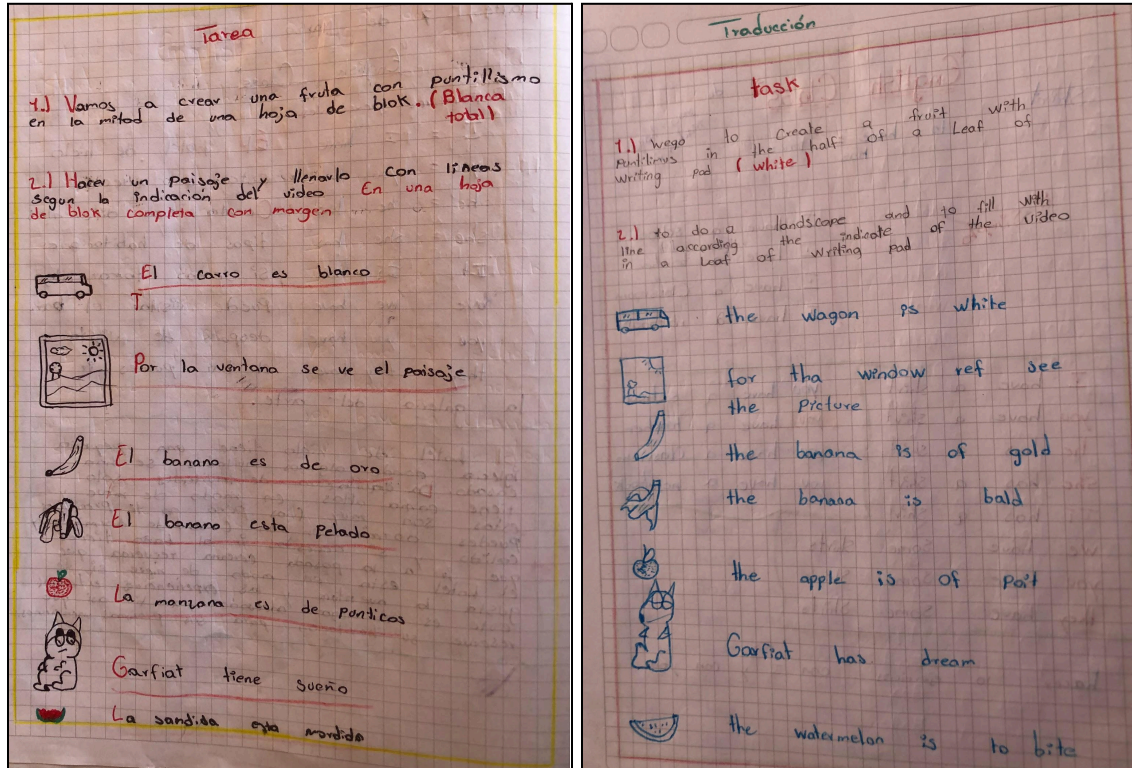 Tarea
1.) Vamos a crear una fruta con puntillismo
en la mitad de una hoja de blok. (Blanca
total)
2.) Hacer un paisaje y llenarlo con lineas
segun la indicación del video En una hoja
de blok completa con margen
El carro es blanco
T
Por la ventana se ve el paisaje
El banano es de oro
El banano esta pelado
La manzana es de punticos
Garfiat tiene sueño
La sandida esta mordida
Traducción
task
1.) wego to create a fruit with
puntilimus in the half of a Leaf of
writing pad (white)
2.) to do a landscape and to fill with
line according the indicate of the video
in a Leaf of writing pad
the wagon is white
for tha window ref see
the Picture
the banana is of gold
the banana is bald
the apple is of poit
Garfiat has dream
the watermelon is to bite